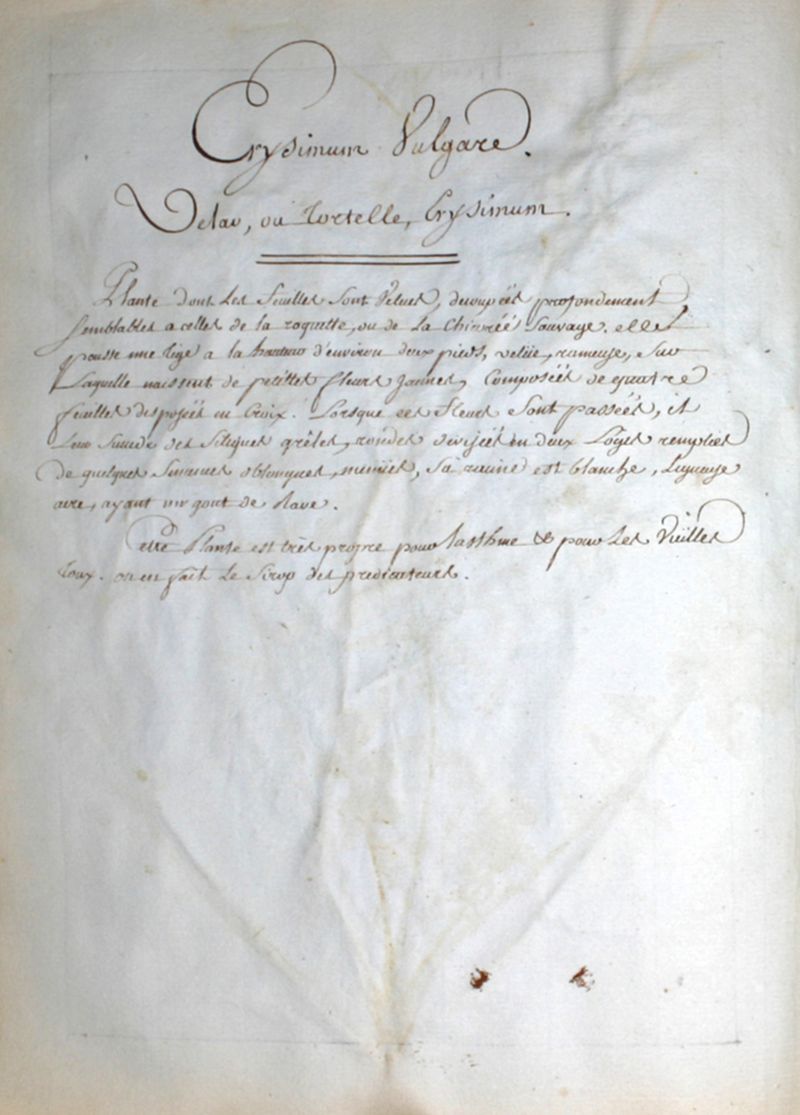 Erysimum Vulgare.
Velar, ou Tortelle, Erysimum.
Plante dont les feuilles sont velues, découpéés profondement
semblables a celles de la roquette, ou de la Chicoréé sauvage. elle
pousse une tige a la hauteur d'environ deux pieds, veluë, rameuse, sur
laquelle naissent de petittes fleurs jaunes, Composéés de quatre
feuilles disposéés en Croix. Lorsque ses fleurs sont passéés, il
leur succede des siliques grêles, rondes divisées en deux Loges remplies
de quelques semences oblongues, menües, sa racine est blanche, Ligneuse
acre, ayant un gout de Rave.
Cette Plante est très propre pour lasthme & pour les vieilles
toux. on en fait le sirop des predicateurs.